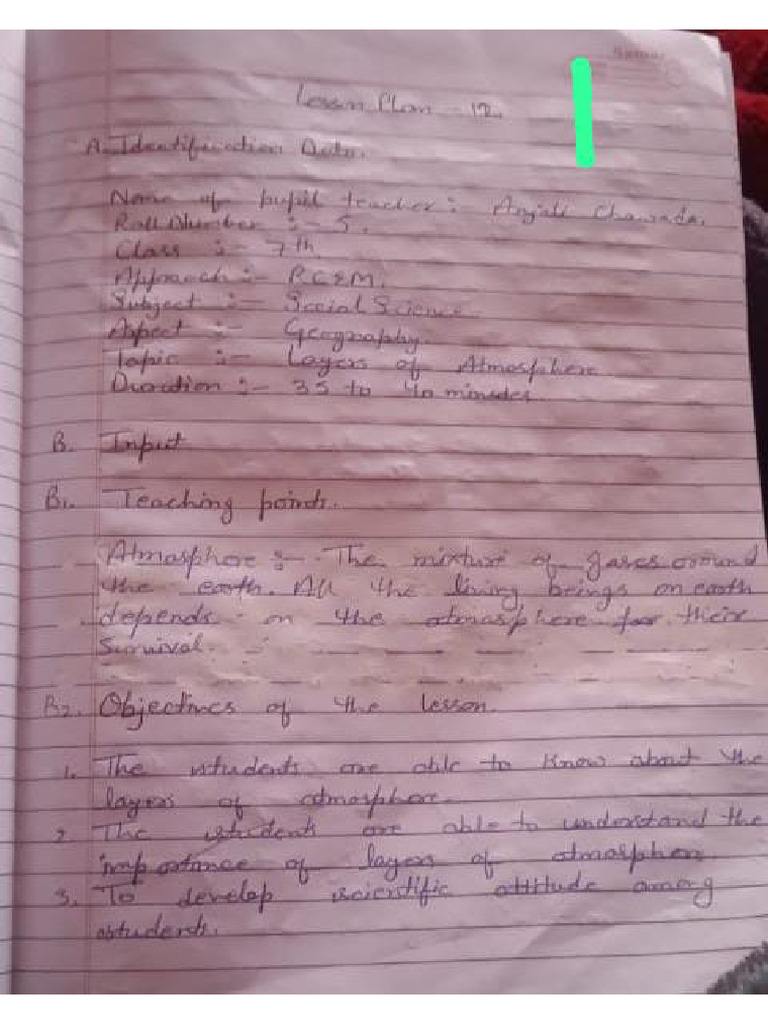 Lesson Plan - 12.
A. Identification Data.
Name of pupil teacher :- Anjali Chawada.
Roll Number :- 5.
Class :- 7th
Approach :- RCEM.
Subject :- Social Science
Aspect :- Geography.
Topic :- Layers of Atmosphere
Duration :- 35 to 40 minutes
B. Input
B1. Teaching points.
Atmosphere :- The mixture of gases around
the earth. All the living beings on earth
depends on the atmosphere for their
Survival.
B2. Objectives of the lesson.
1. The students are able to know about the
layers of atmosphere.
2. The students are able to understand the
importance of layers of atmosphere.
3. To develop scientific attitude among
students.